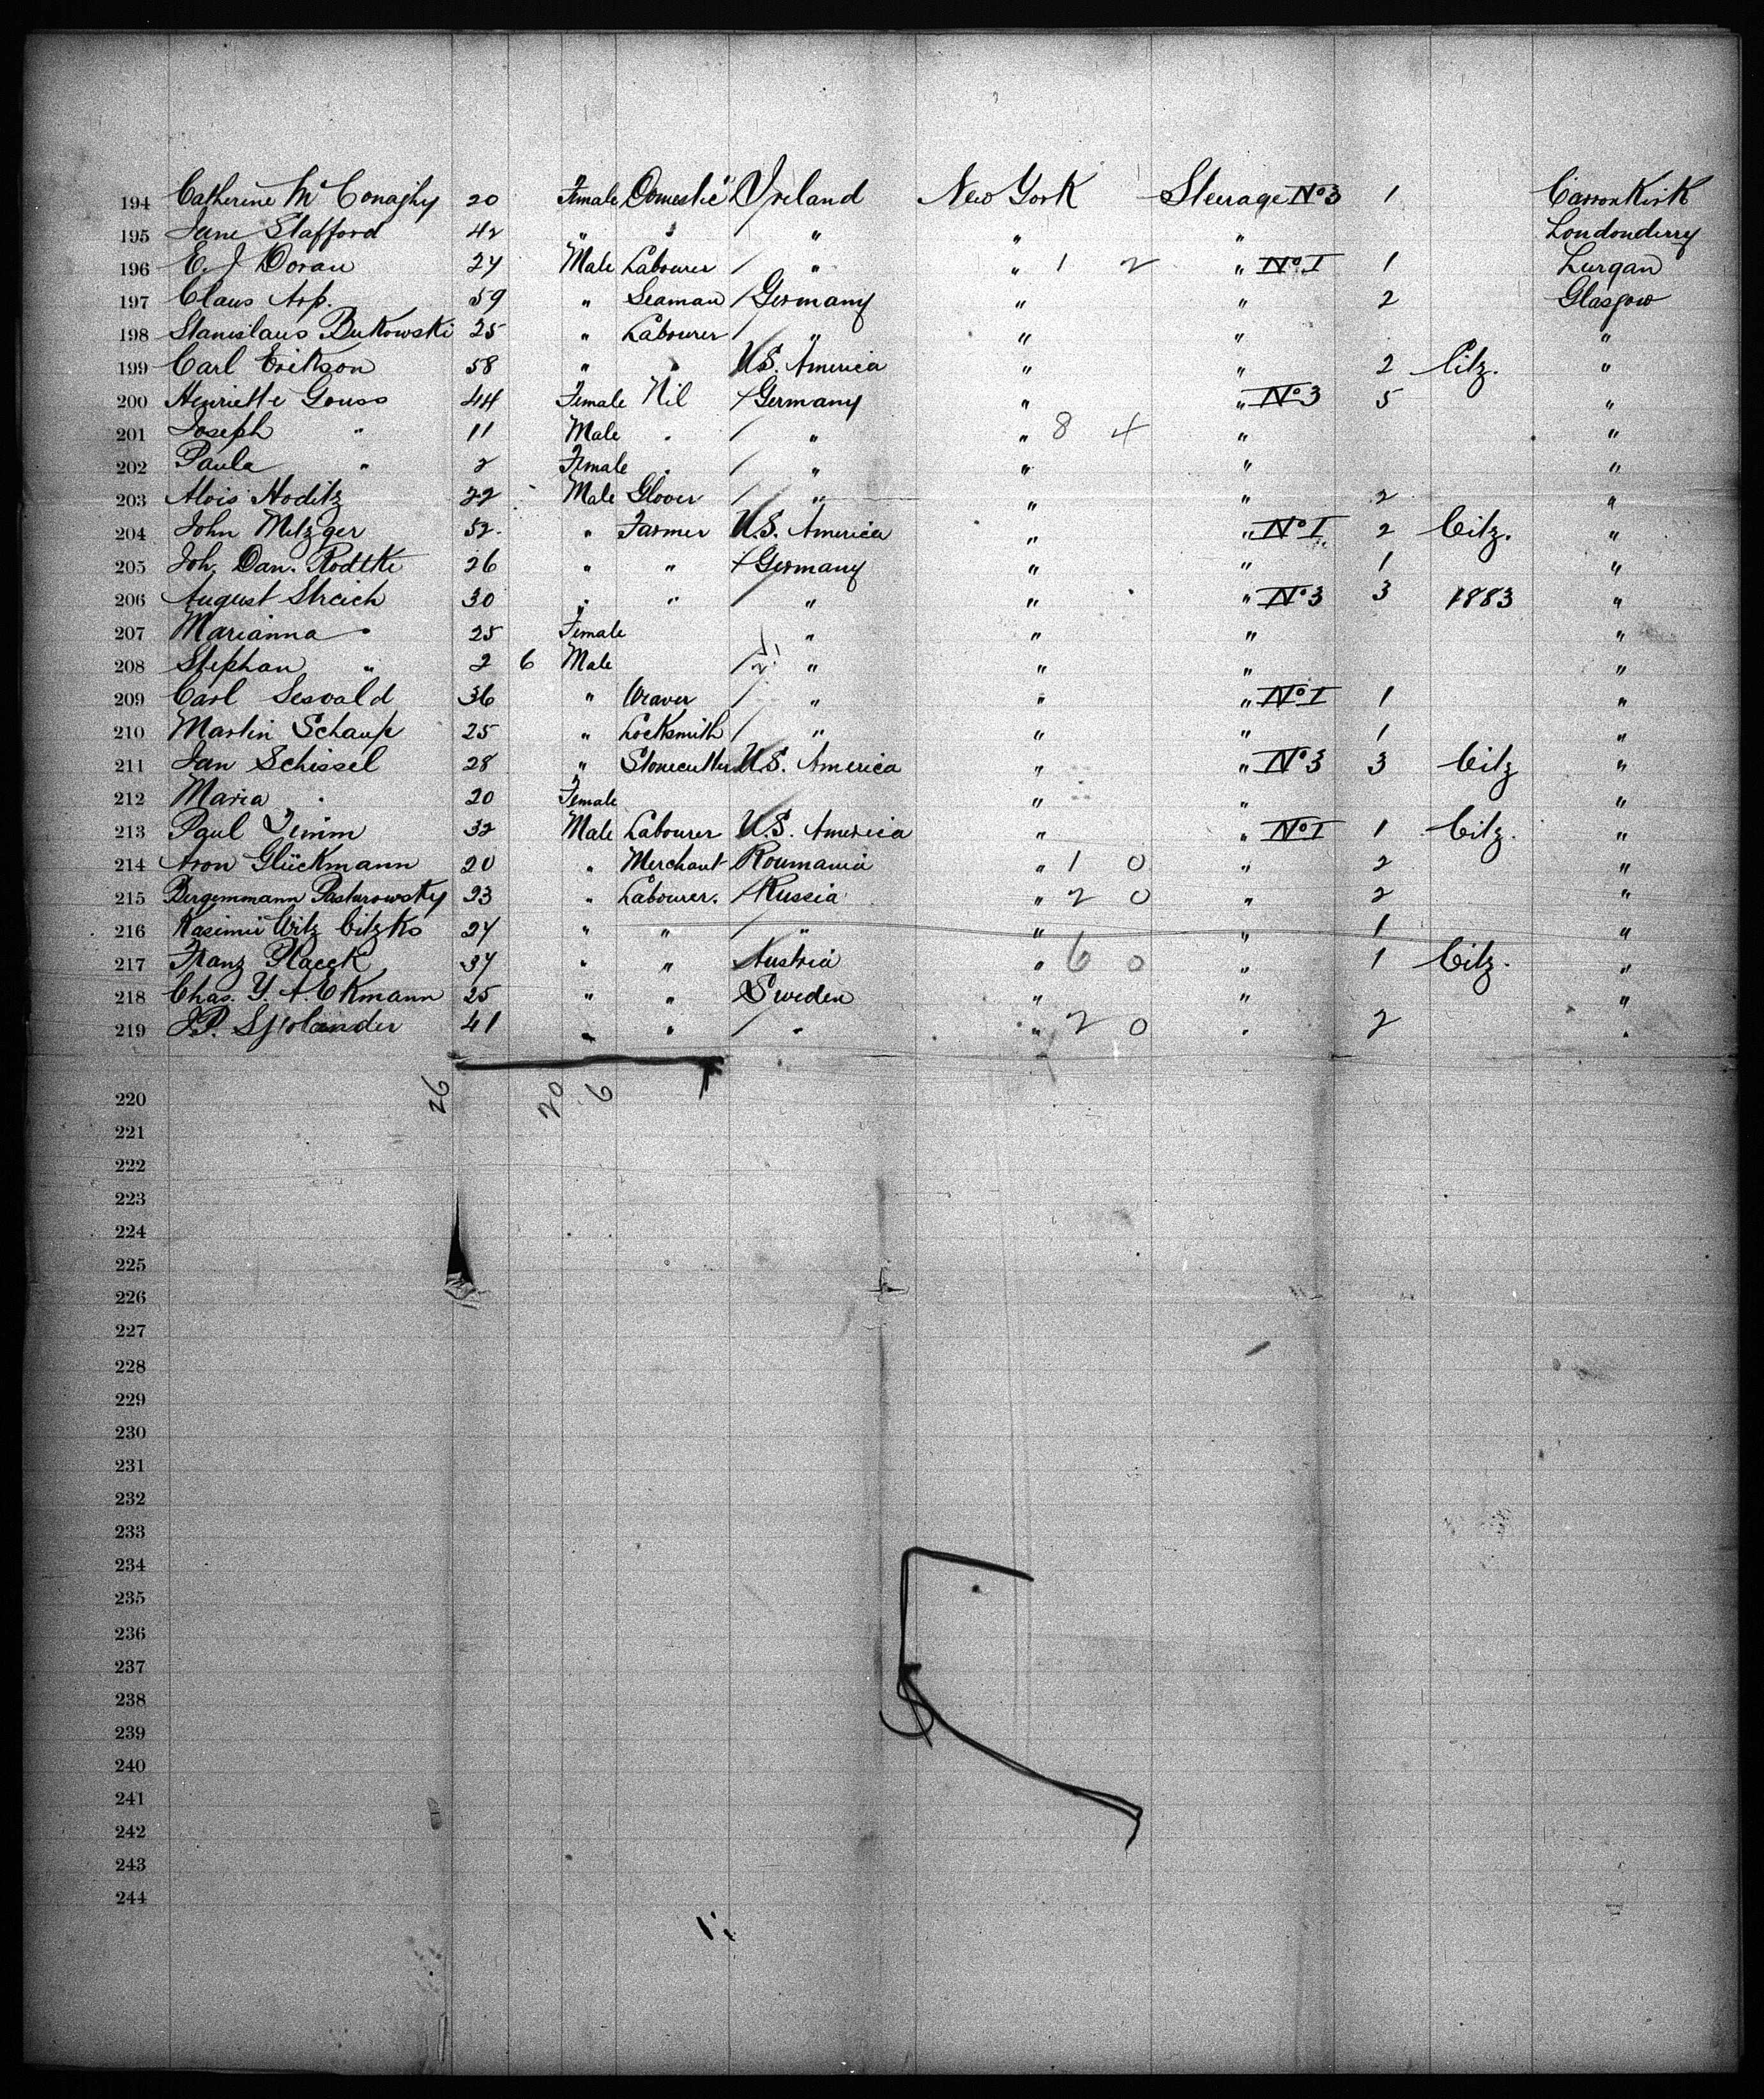 194 Catherine McConaghy 20 Female Domestic Ireland New York Steerage No 3 1 Carronkirk
195 Jane Stafford 42 " " " " " Londonderry
196 E. J Doran 24 Male Labourer / " " 1 2 " No I 1 Lurgan
197 Claus Arp. 59 " Seaman / Germany " " 2 Glasgow
198 Stanislaus Bukowski 25 " Labourer / " " " "
199 Carl Erikson 58 " " U.S. America " " 2 Citz. "
200 Henriette Gouss 44 Female Nil / Germany " " No 3 5 "
201 Joseph " 11 Male " / " " 8 4 " "
202 Paula " 2 Female " / " " " "
203 Alois Hoditz 22 Male Glover / " " " 2 "
204 John Metzger 52. " Farmer U.S. America " " No I 2 Citz. "
205 Joh. Dan. Rodtke 26 " " / Germany " " 1 "
206 August Streich 30 " " / " " " No 3 3 1883 "
207 Marianna " 25 Female " " " "
208 Stephan " 2 6 Male / " " " "
209 Carl Seswald 36 " Weaver / " " " No I 1 "
210 Martin Schaup 25 " Locksmith / " " " 1 "
211 Jan Schissel 28 " Stonecutter U.S. America " " No 3 3 Citz "
212 Maria " 20 Female " " "
213 Paul Timm 32 Male Labourer U.S. America " " No I 1 Citz. "
214 Aron Glückmann 20 " Merchant Roumania " 1 0 " 2 "
215 Bergemmann Pasturowsky 23 " Labourer. / Russia " 2 0 " 2 "
216 Kasimir Witz Citzko 24 " " / " " " 1 "
217 Franz Placek 34 " " Austria " 6 0 " 1 Citz. "
218 Chas. Y. A. Ekmann 25 " " Sweden " " "
219 J.P. Sjolander 41 " " / " " 2 0 " 2 "
26 20 6
220
221
222
223
224
225
226
227
228
229
230
231
232
233
234
235
236
237
238
239
240
241
242
243
244